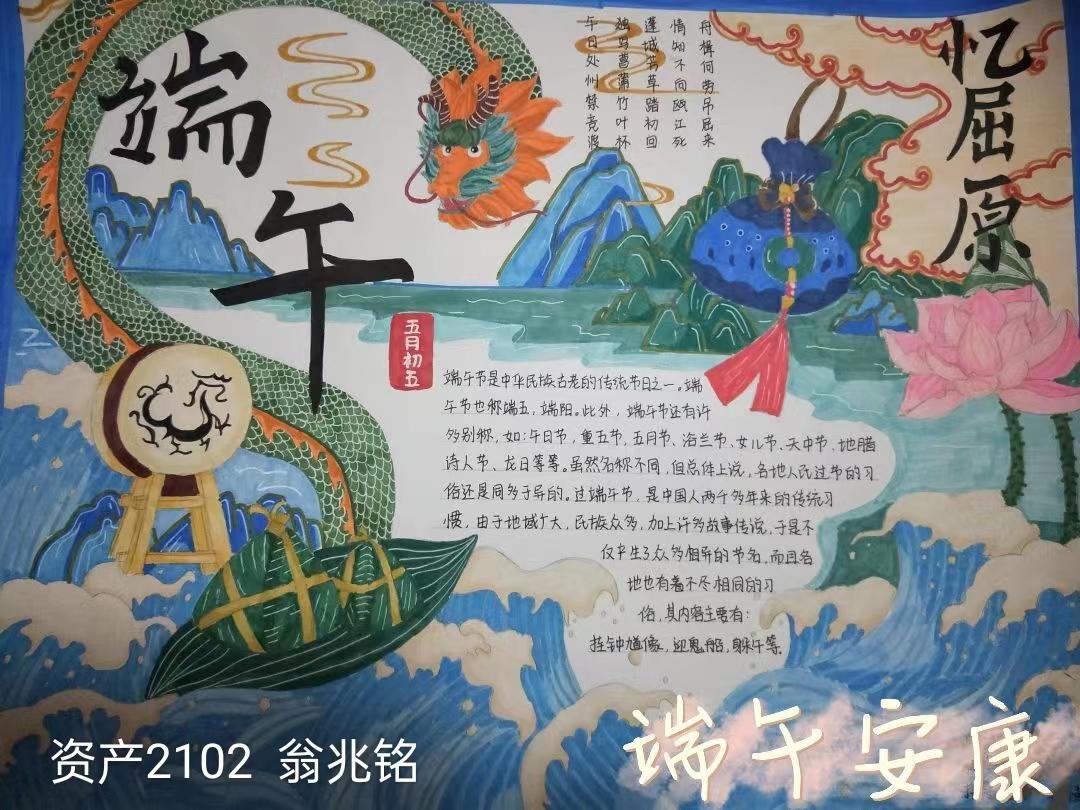 端午
午日处州禁竞渡
独写菖蒲竹叶杯
蓬城芳草踏初回
情知不向瓯江死
舟楫何劳吊屈来
忆屈原
五月初五
端午节是中华民族古老的传统节日之一。端
午节也称端五，端阳。此外，端午节还有许
多别称，如：午日节，重五节，五月节，浴兰节，女儿节、天中节、地腊
诗人节、龙日等等。虽然名称不同，但总体上说，各地人民过节的习
俗还是同多于异的。过端午节，是中国人两千多年来的传统习
惯，由于地域广大，民族众多，加上许多故事传说，于是不
仅产生了众多相异的节名，而且各
地也有着不尽相同的习
俗，其内容主要有：
挂钟馗像，迎鬼船，躲午等
资产2102 翁兆铭
端午安康